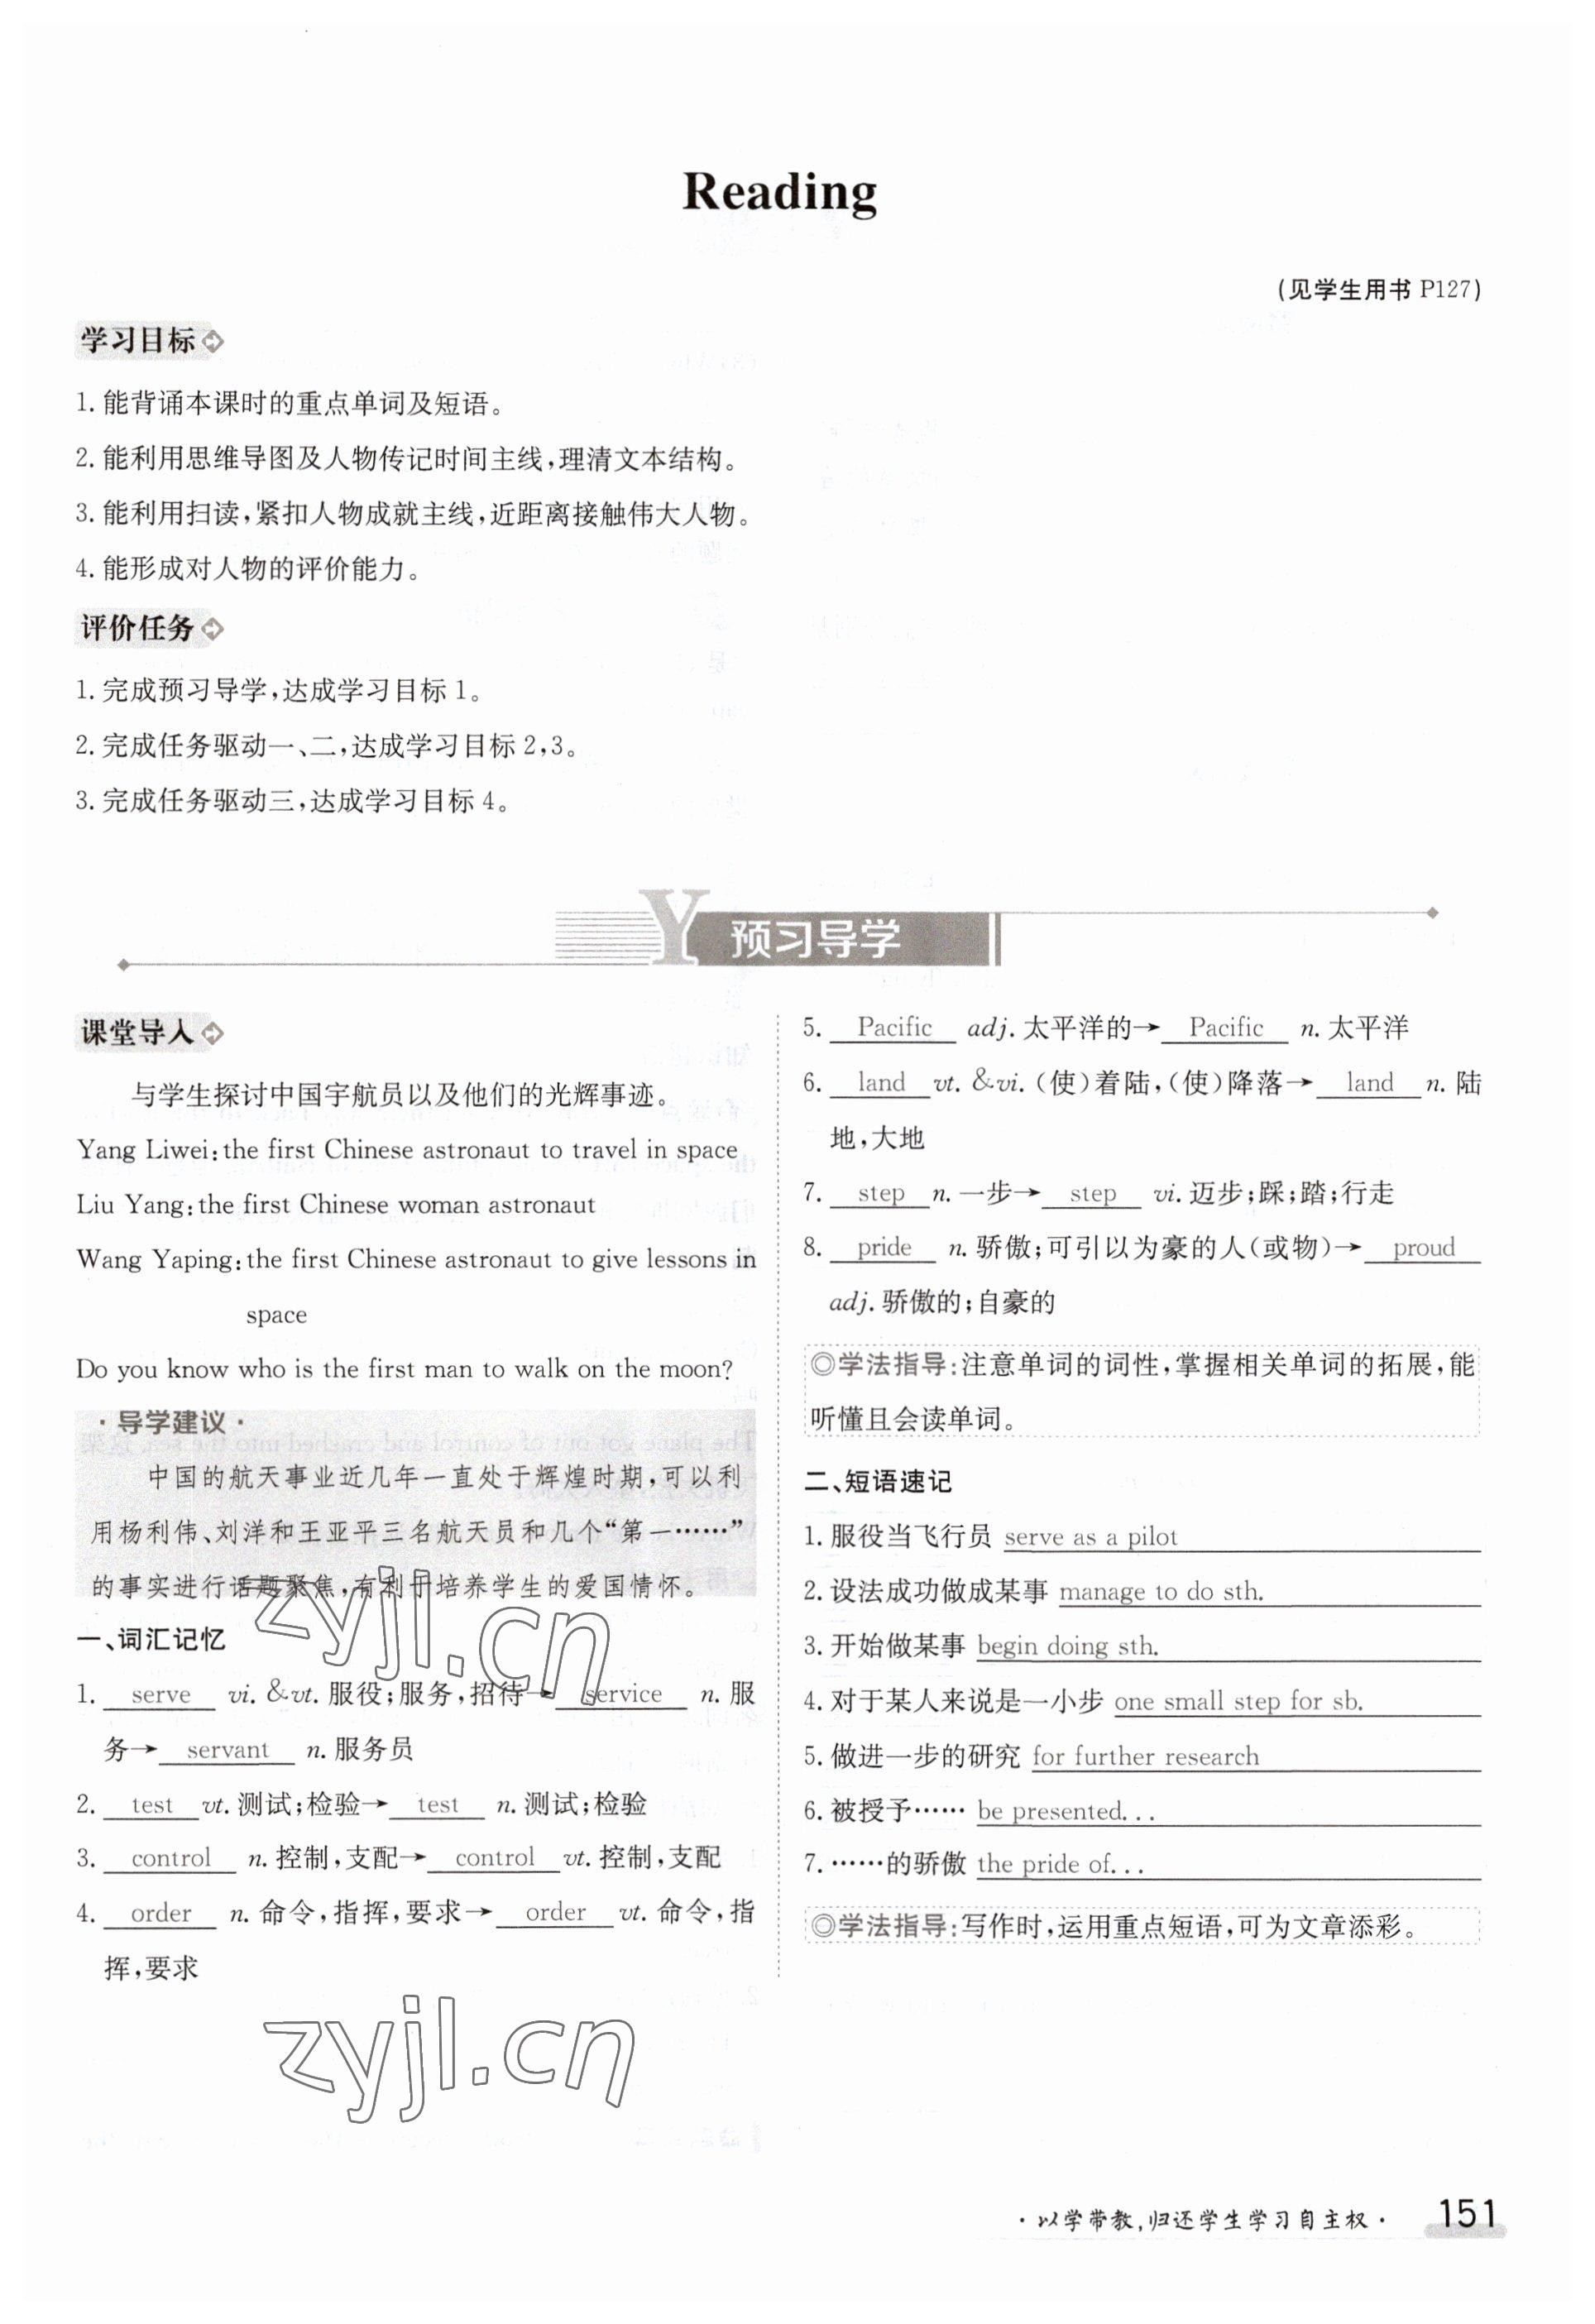 Reading
(见学生用书 P127)
学习目标
1. 能背诵本课时的重点单词及短语。
2. 能利用思维导图及人物传记时间主线,理清文本结构。
3. 能利用扫读,紧扣人物成就主线,近距离接触伟大人物。
4. 能形成对人物的评价能力。
评价任务
1. 完成预习导学,达成学习目标 1。
2. 完成任务驱动一、二,达成学习目标 2,3。
3. 完成任务驱动三,达成学习目标 4。
Y 预习导学
课堂导入
与学生探讨中国宇航员以及他们的光辉事迹。
Yang Liwei: the first Chinese astronaut to travel in space
Liu Yang: the first Chinese woman astronaut
Wang Yaping: the first Chinese astronaut to give lessons in
space
Do you know who is the first man to walk on the moon?
· 导学建议 ·
中国的航天事业近几年一直处于辉煌时期,可以利
用杨利伟、刘洋和王亚平三名航天员和几个“第一……”
的事实进行话题聚焦,有利于培养学生的爱国情怀。
一、词汇记忆
1. serve vi. &vt. 服役;服务,招待→ service n. 服
务→ servant n. 服务员
2. test vt. 测试;检验→ test n. 测试;检验
3. control n. 控制,支配→ control vt. 控制,支配
4. order n. 命令,指挥,要求→ order vt. 命令,指
挥,要求
5. Pacific adj. 太平洋的→ Pacific n. 太平洋
6. land vt. &vi. (使)着陆,(使)降落→ land n. 陆
地,大地
7. step n. 一步→ step vi. 迈步;踩;踏;行走
8. pride n. 骄傲;可引以为豪的人(或物)→ proud
adj. 骄傲的;自豪的
◎学法指导:注意单词的词性,掌握相关单词的拓展,能
听懂且会读单词。
二、短语速记
1. 服役当飞行员 serve as a pilot
2. 设法成功做成某事 manage to do sth.
3. 开始做某事 begin doing sth.
4. 对于某人来说是一小步 one small step for sb.
5. 做进一步的研究 for further research
6. 被授予…… be presented...
7. ……的骄傲 the pride of...
◎学法指导:写作时,运用重点短语,可为文章添彩。
zyjl.cn
zyjl.cn
· 以学带教,归还学生学习自主权 · 151